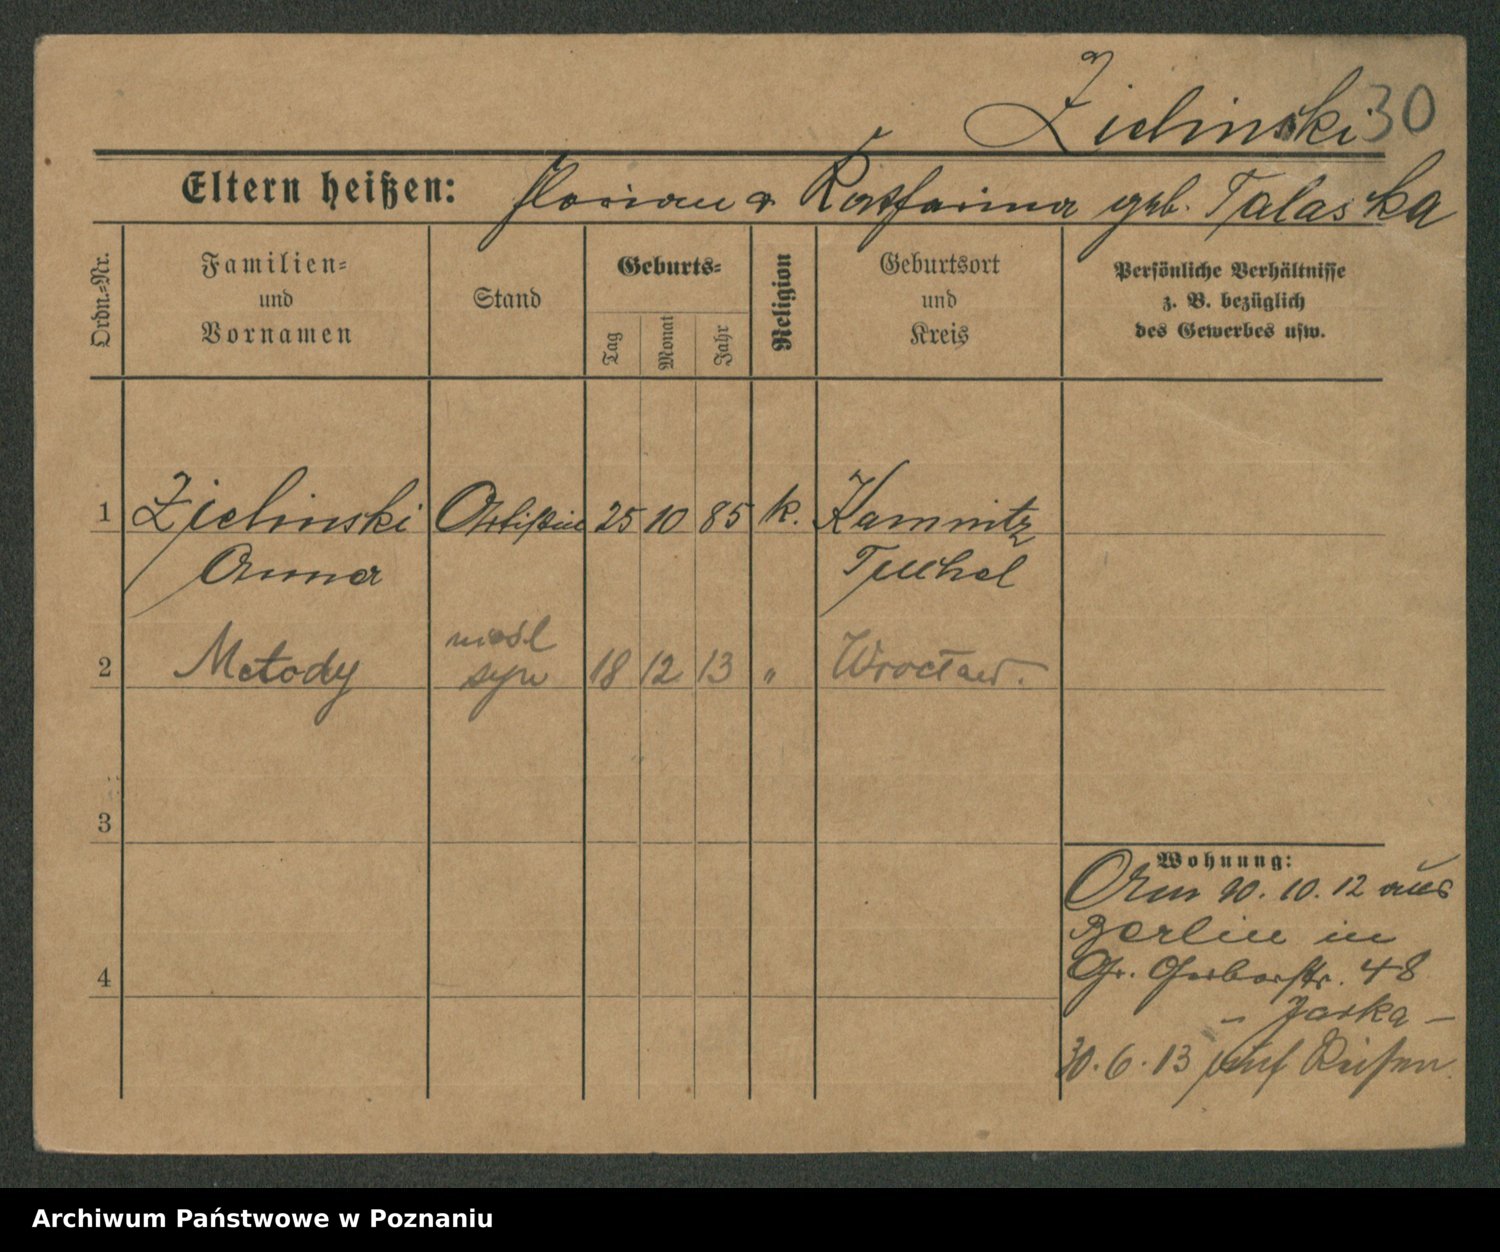 Zielinski 30
Eltern heißen: Florian u. Katharina geb. Talaska
Ordn.=Nr.
Familien=
und
Vornamen
Stand
Geburts=
Tag
Monat
Jahr
Religion
Geburtsort
und
Kreis
Persönliche Verhältnisse
z. B. bezüglich
des Gewerbes usw.
1 Zielinski 25 10 85 k. Kamnitz
Anna Tuchel
nieśl
2 Metody syn 18 12 13 " Wrocław.
3
4
Wohnung:
Am 20. 10. 12 aus
Berlin in
Gr. Gerberstr. 48
– Jaska –
30. 6. 13 auf Reisen
Archiwum Państwowe w Poznaniu